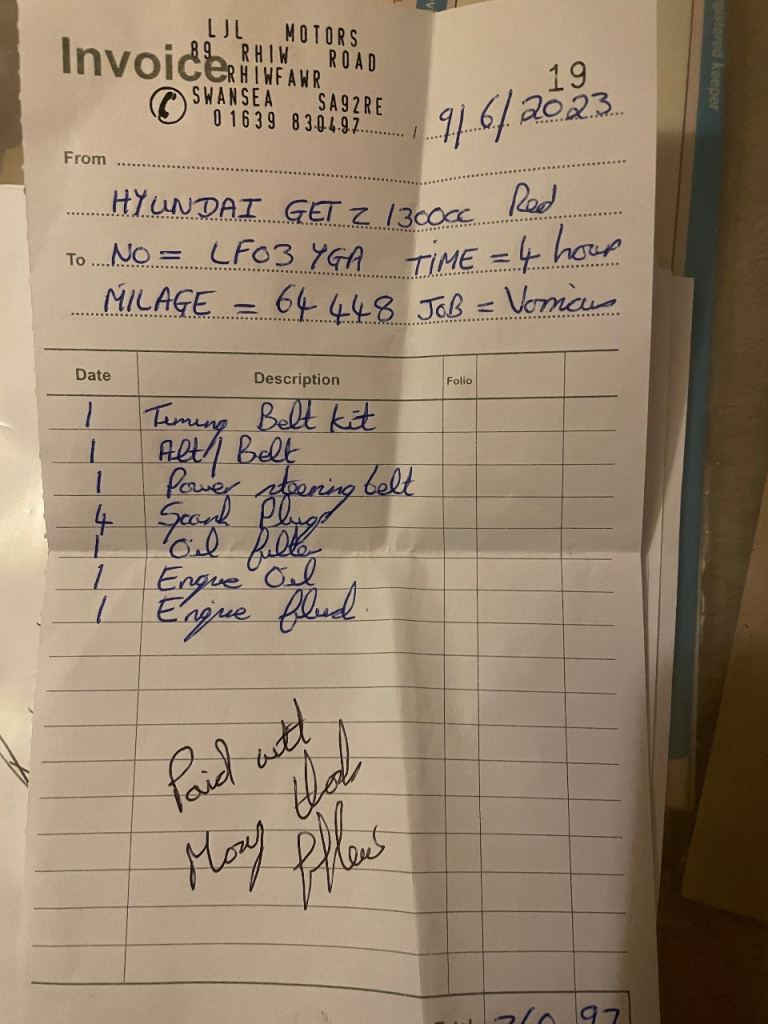 LJL MOTORS
89 RHIW ROAD
Invoice RHIWFAWR
SWANSEA SA92RE
01639 830497
19
9/6/2023
From
HYUNDAI GETZ 1300cc Red
To NO = LF03 YGA TIME = 4 hour
MILAGE = 64 448 JOB =
Date Description Folio
1 Timing Belt kit
1 Alt/ Belt
1 Power steering belt
4 Spark Plugs
1 Oil filter
1 Engine Oil
1 Engine flud.
Paid with
registered keeper